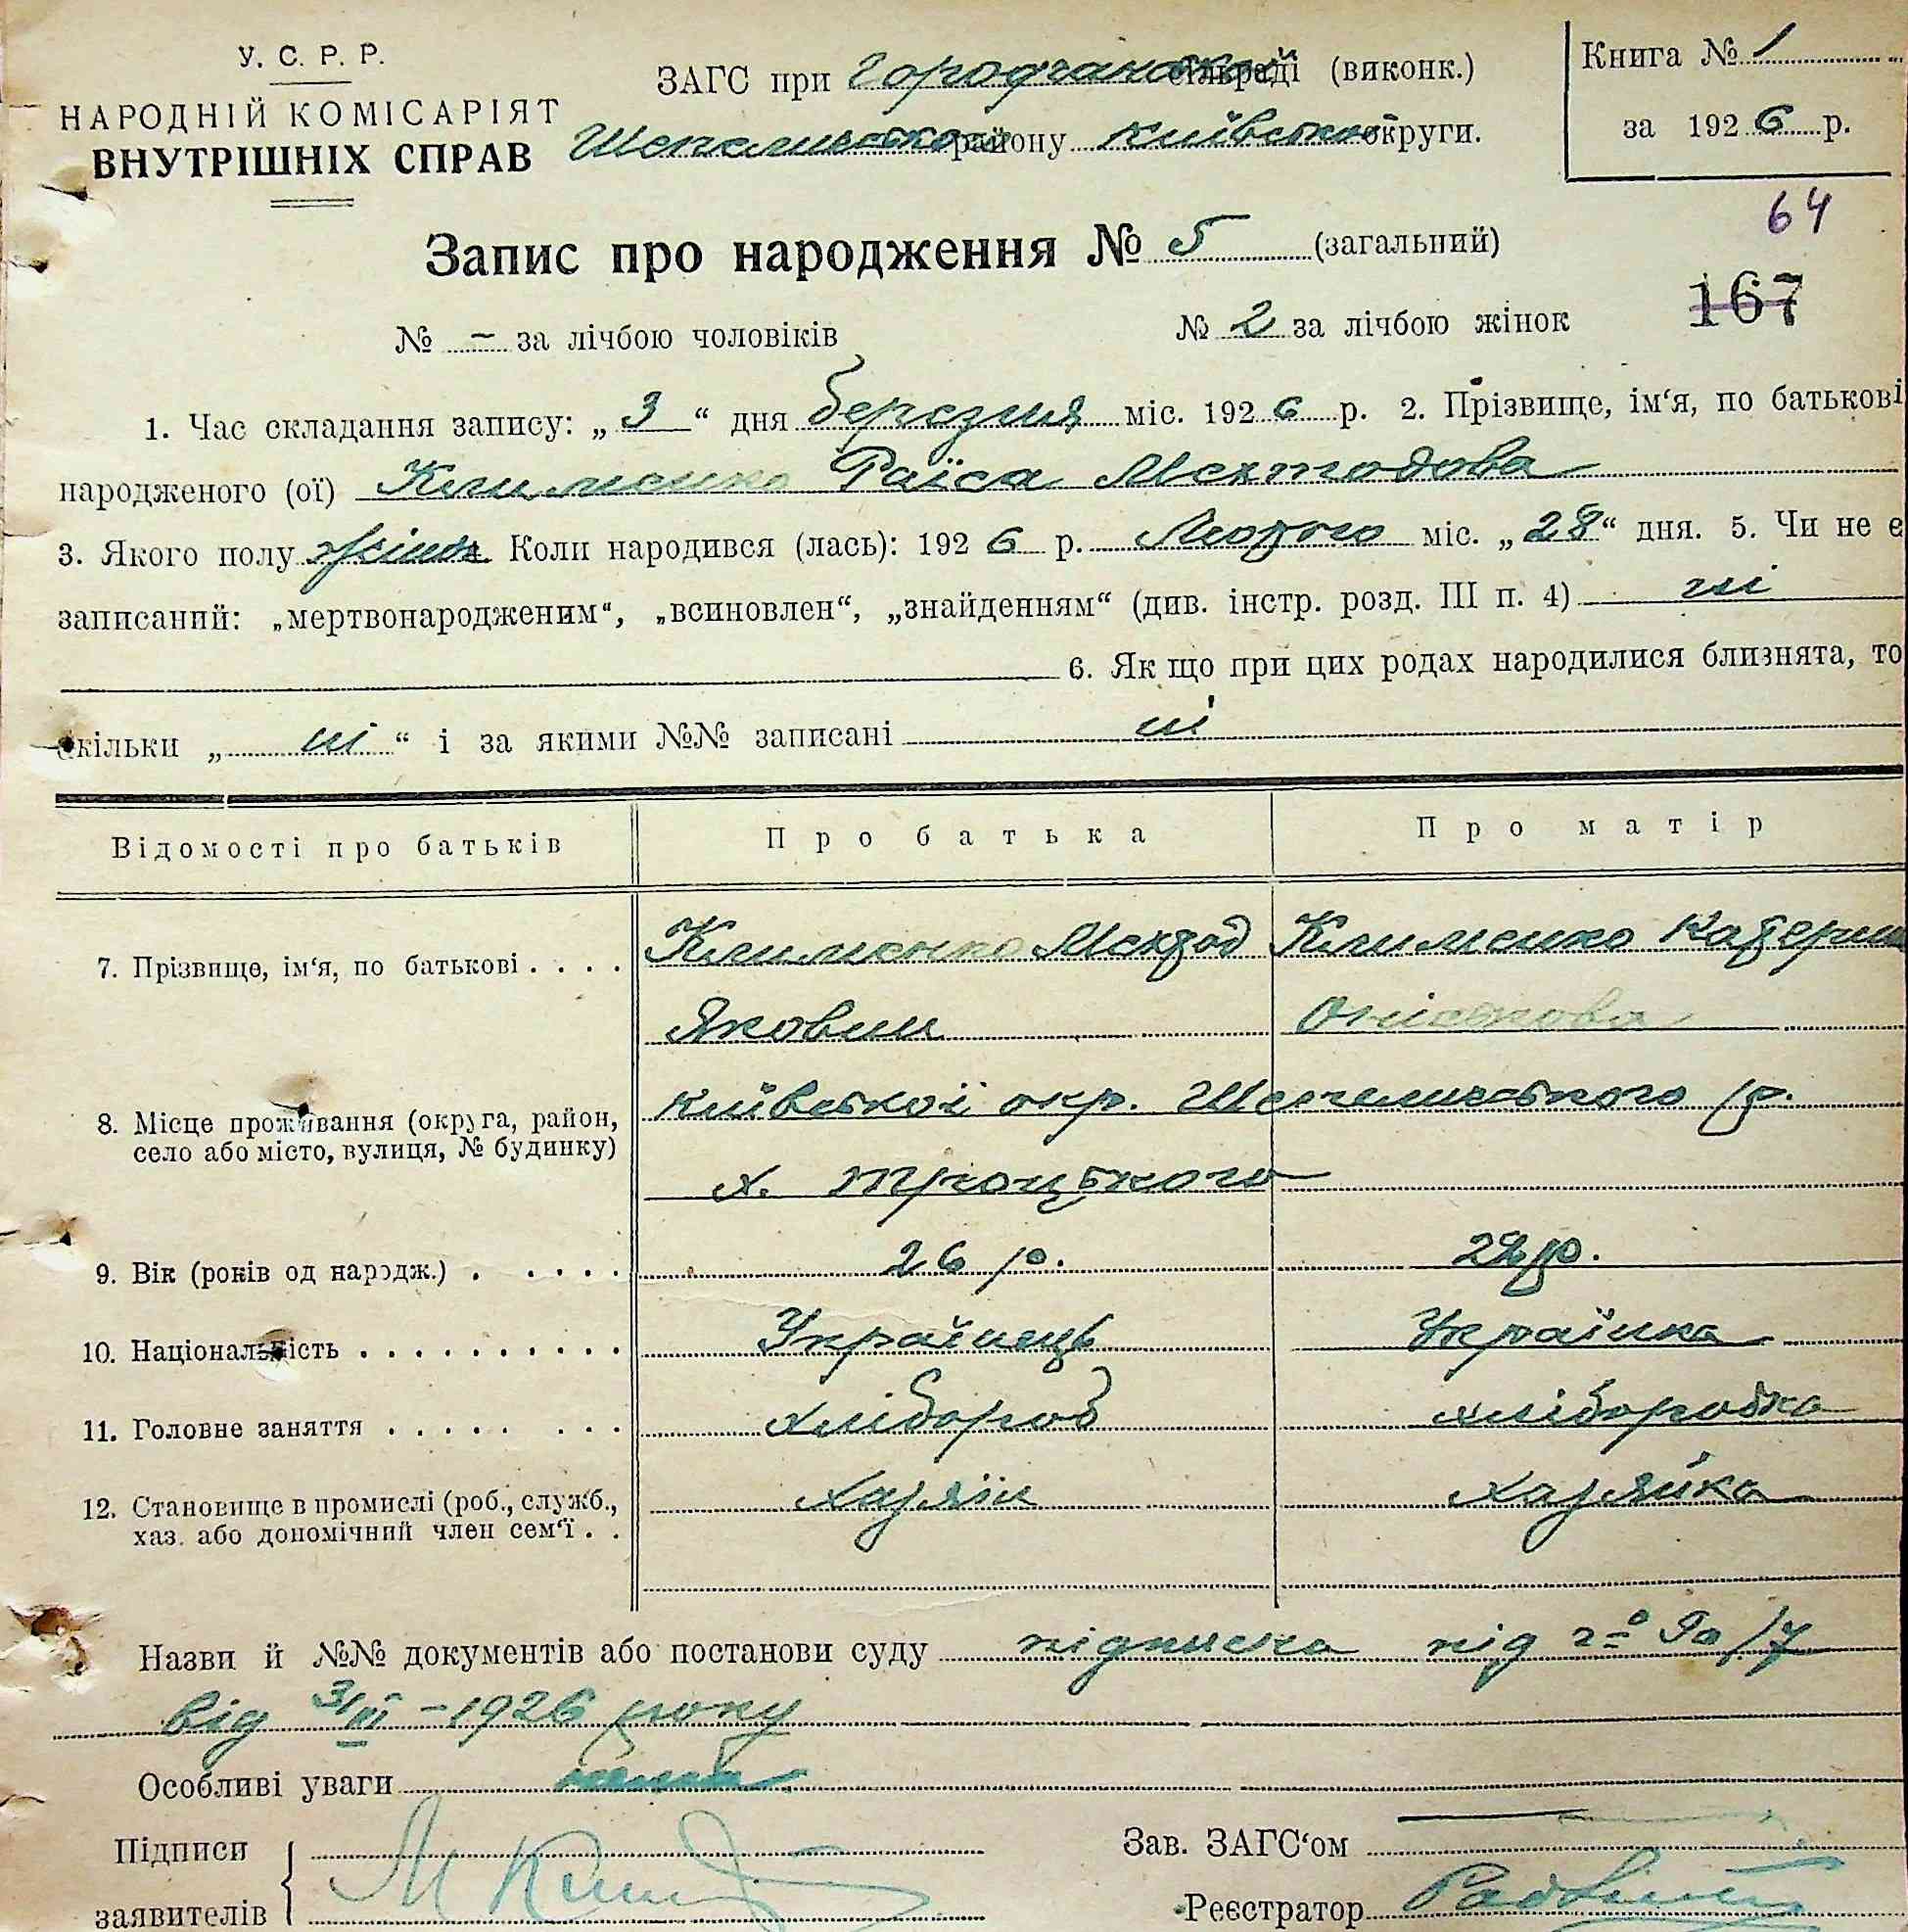 У. С. Р. Р.
НАРОДНІЙ КОМІСАРІЯТ
ВНУТРІШНІХ СПРАВ
ЗАГС при сільраді (виконк.)
району Київської округи.
Книга № 1
за 1926 р.
64
Запис про народження № 5 (загальний)
167
№ – за лічбою чоловіків № 2 за лічбою жінок
1. Час складання запису: „3“ дня березня міс. 1926 р. 2. Прізвище, ім‘я, по батькові
народженого (ої) Клименко Раїса Мехтодова
3. Якого полу жіноч. Коли народився (лась): 1926 р. Лютого міс. „28“ дня. 5. Чи не є
записаний: „мертвонародженим“, „всиновлен“, „знайденням“ (див. інстр. розд. III п. 4) ні
6. Як що при цих родах народилися близнята, то
скільки „ні“ і за якими №№ записані ні
Відомості про батьків Про батька Про матір
7. Прізвище, ім‘я, по батькові . . . . Клименко Мехтод Клименко Катерина
Якович Оніськова
8. Місце проживання (округа, район, село або місто, вулиця, № будинку) Київської окр. р.
х. Троцького
9. Вік (років од народж.) . . . . . 26 р. р.
10. Національність . . . . . . . . . . Українець Українка
11. Головне заняття . . . . . . . . Хлібороб хліборобка
12. Становище в промислі (роб., служб., хазяїн хазяйка
хаз. або допомічний член сем‘ї . .
Назви й №№ документів або постанови суду підписка під за
від 3/III – 1926 року
Особливі уваги нема
Підписи
заявителів
Зав. ЗАГС‘ом
Реєстратор